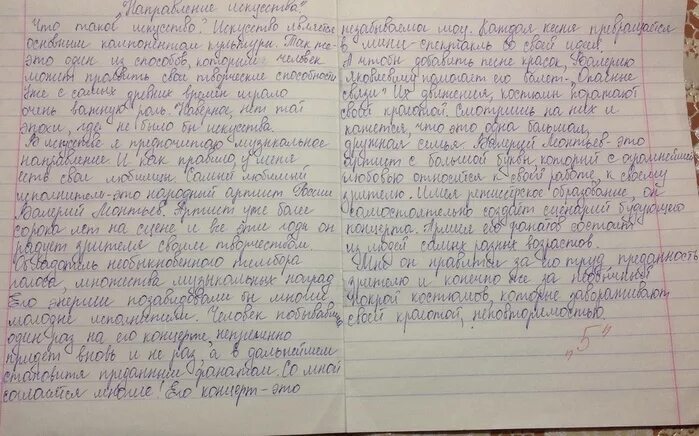 "Направление искусства"
Что такое искусство? Искусство является
основным компонентом культуры. Так же
это один из способов, которым человек
может проявить свои творческие способности
Уже с самых древних времён играло
очень важную роль. Наверное, нет той
эпохи, где не было бы искусства.
В искусстве я предпочитаю музыкальное
направление И как правило, у меня
есть свои любимцы. Самый любимый
исполнитель-это народный артист России
Валерий Леонтьев. Артист уже более
сорока лет на сцене и все эти годы он
радует зрителя своим творчеством.
Обладатель необыкновенного тембра
голоса, множества музыкальных наград
Его энергии позавидовали бы многие
молодые исполнители. Человек побывавший
один раз на его концерте, непременно
придет вновь и не раз, а в дальнейшем
становится преданным фанатом. Со мной
согласятся многие! Его концерт-это
незабываемое шоу. Каждая песня превращается
в мини-спектакль со своей идеей.
А чтобы добавить песне красок, Валерию
Яковлевичу помогает его балет-"Опасные
связи" Их движения, костюмы поражают
своей красотой. Смотришь на них и
кажется, что это одна большая,
дружная семья. Валерий Леонтьев-это
артист с большой буквы который с огромнейшей
любовью относится к своей работе, к своему
зрителю. Имея режиссёрское образование, он
самостоятельно создаёт сценарий будущего
концерта. Армия его фанатов состоит
из людей самых разных возрастов.
Мне он нравится за его труд, преданность
зрителю и конечно же за необычный
покрой костюмов, которые завораживают
своей красотой, неповторимостью.
"5"